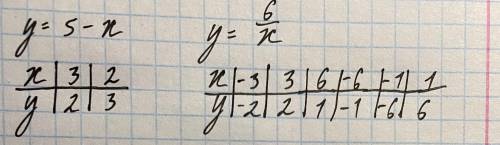 y = 5 - x
x | 3 | 2
y | 2 | 3
y = 6/x
x | -3 | 3 | 6 | -6 | -1 | 1
y | -2 | 2 | 1 | -1 | -6 | 6